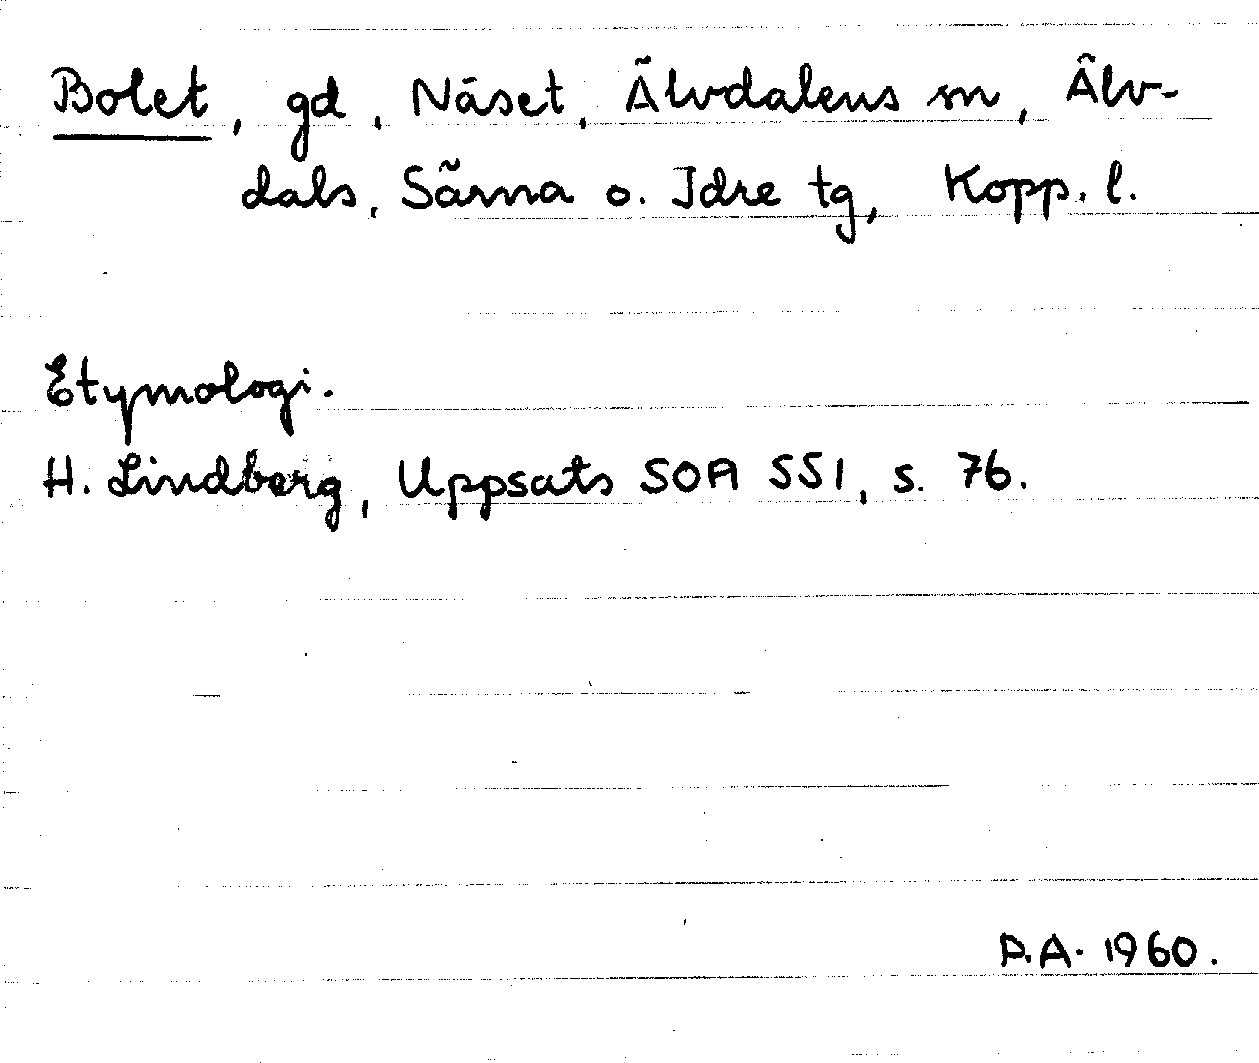 Bolet, gd, Näset, Älvdalens sn, Älv-
dals, Särna o. Idre tg, Kopp. l.
Etymologi.
H. Lindberg, Uppsats SOA SSI, s. 76.
P.A. 1960.